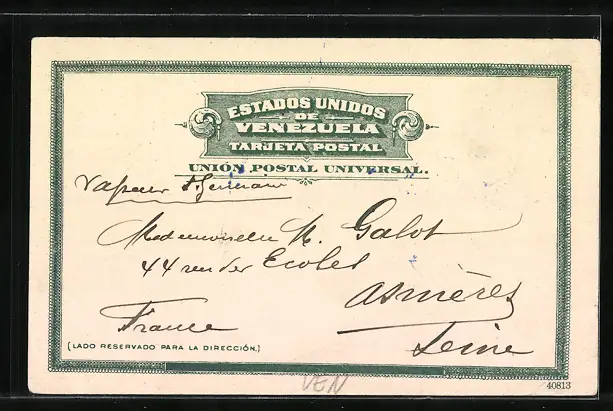 ESTADOS UNIDOS
DE
VENEZUELA
TARJETA POSTAL
UNIÓN POSTAL UNIVERSAL.
Vapeur St Germain
Mademoiselle M. Galot
44 rue des Ecoles
Asnières
France
Seine
(LADO RESERVADO PARA LA DIRECCIÓN.)
40813
VEN